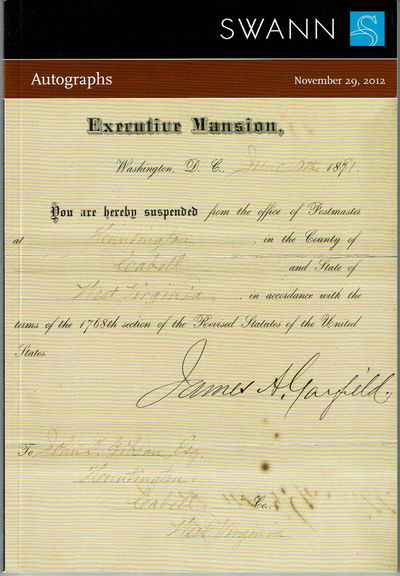 SWANN
Autographs November 29, 2012
Executive Mansion,
Washington, D. C., June 1881.
You are hereby suspended from the office of Postmaster
at Huntington in the County of
Cabell and State of
West Virginia in accordance with the
terms of the 1768th section of the Revised Statutes of the United
States.
James A. Garfield.
To John Gibson, Esq.
Huntington,
Cabell Co.,
West Virginia